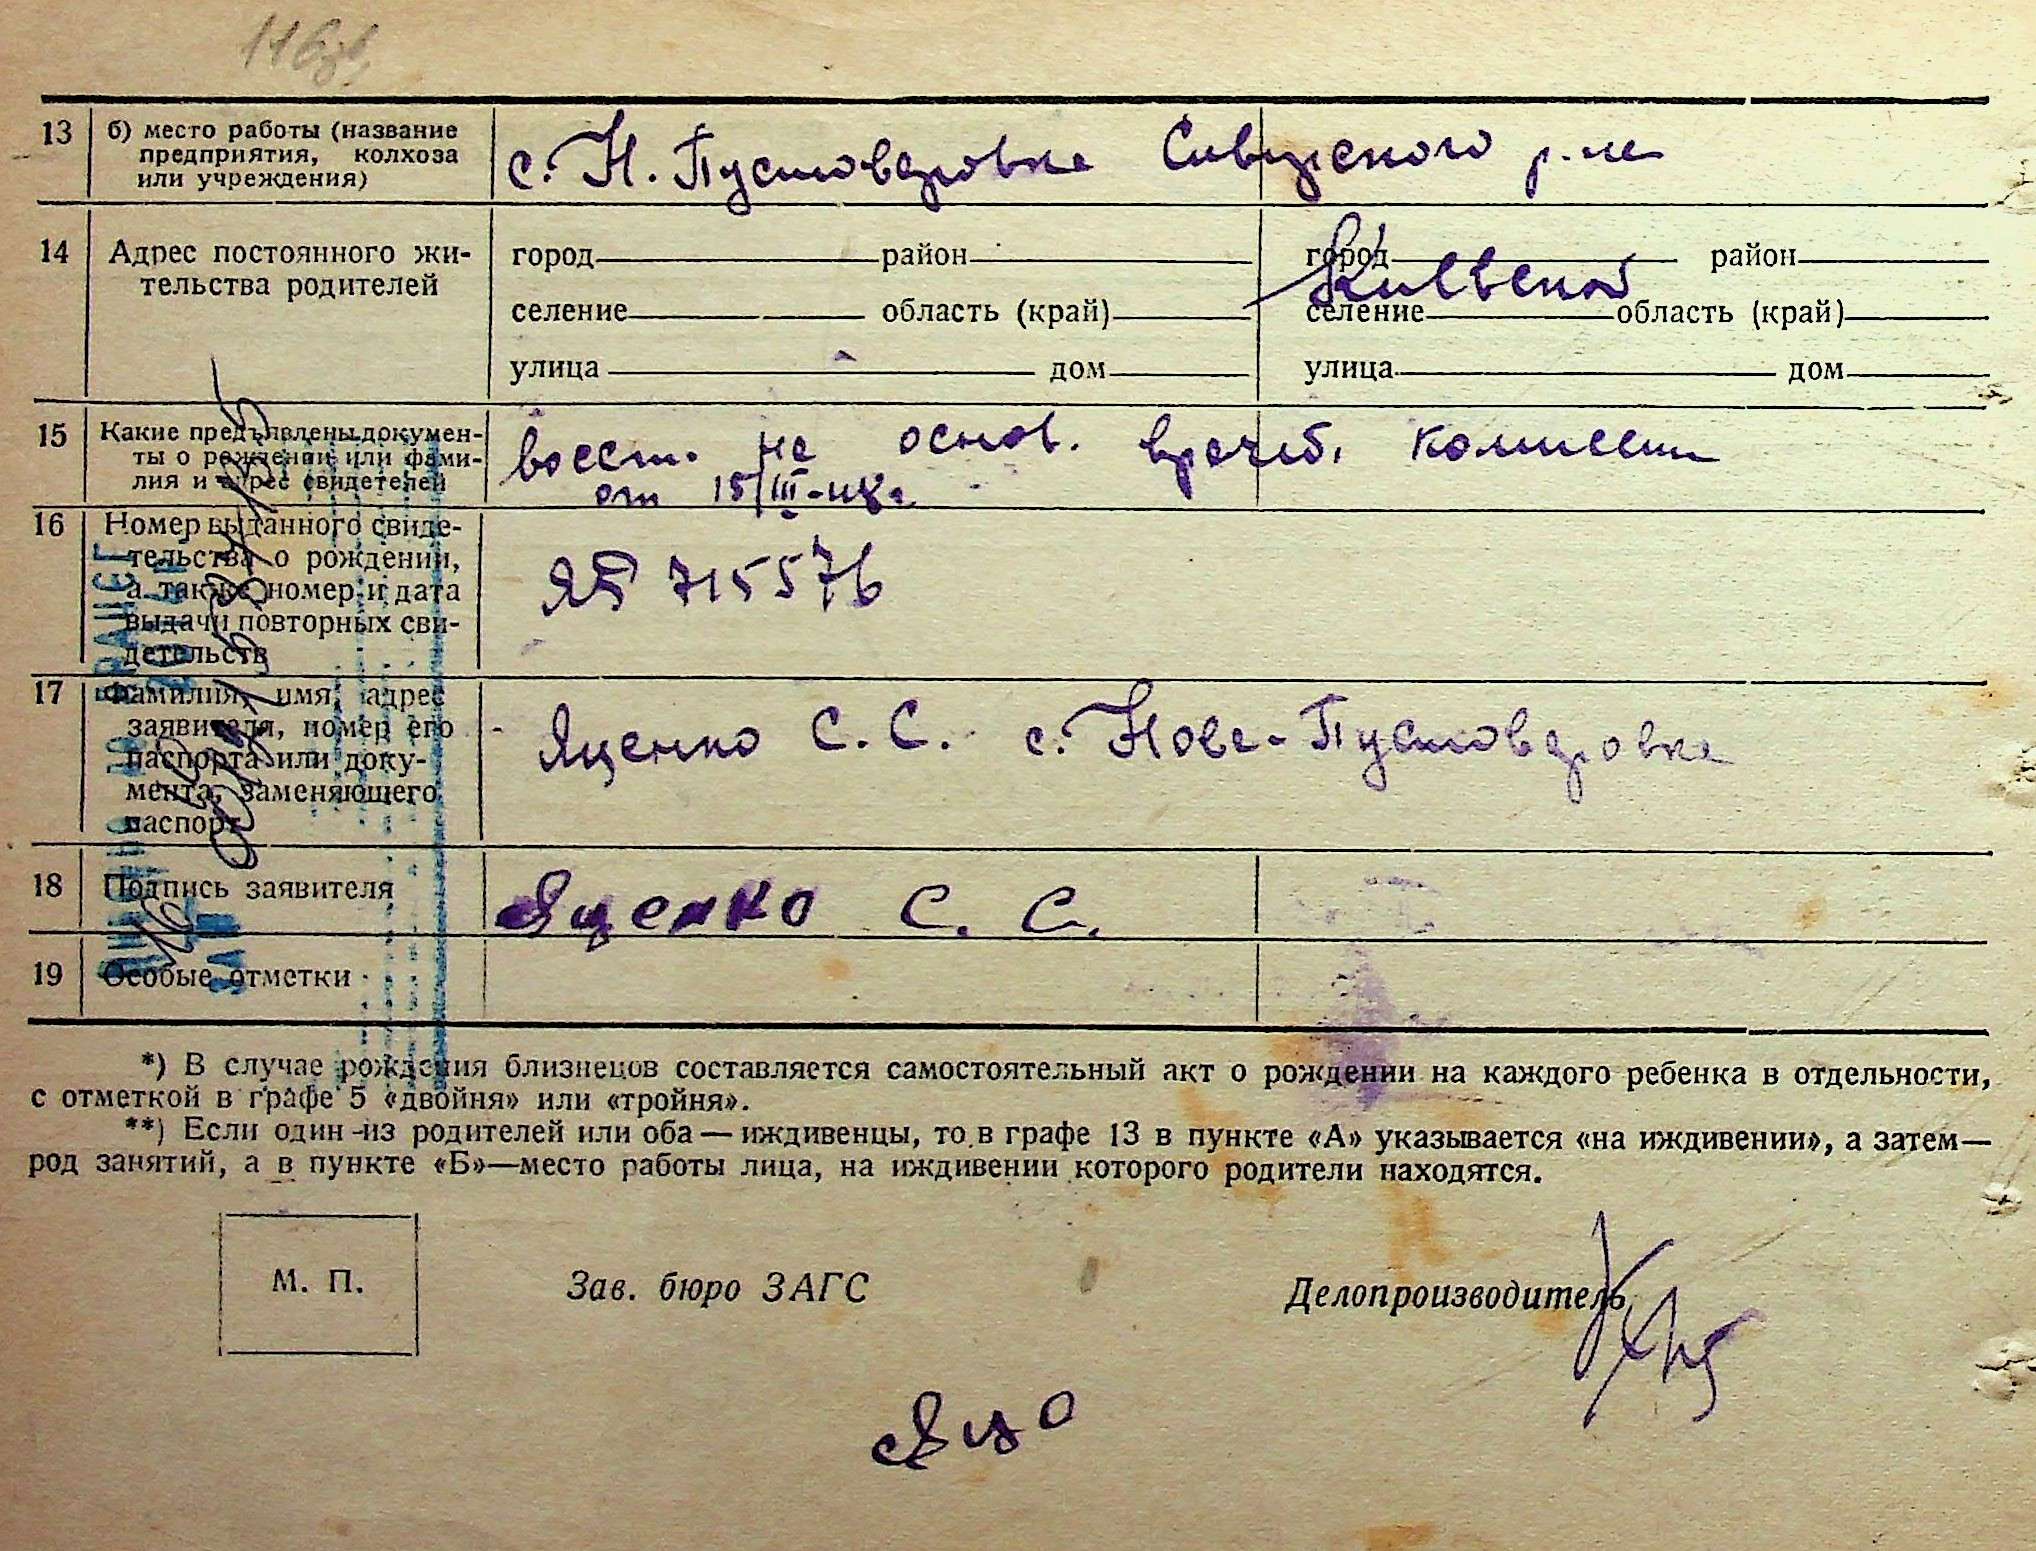 13 б) место работы (название
предприятия, колхоза
или учреждения)
с. Н. Пустоваровка Сквирского р-на
14 Адрес постоянного жи-
тельства родителей
город район город район
Киевской
селение область (край) селение область (край)
улица дом улица дом
15 Какие предъявлены докумен-
ты о рождении или фами-
лия и адрес свидетелей
восст. на основ. врачеб. комиссии
от 15/III-48г.
16 Номер выданного свиде-
тельства о рождении,
а также номер и дата
выдачи повторных сви-
детельств
715576
17 Фамилия, имя, адрес
заявителя, номер его
паспорта или доку-
мента, заменяющего
паспорт
Яценко С. С. с. Ново-Пустоваровка
18 Подпись заявителя
Яценко С. С.
19 Особые отметки
*) В случае рождения близнецов составляется самостоятельный акт о рождении на каждого ребенка в отдельности,
с отметкой в графе 5 «двойня» или «тройня».
**) Если один из родителей или оба — иждивенцы, то в графе 13 в пункте «А» указывается «на иждивении», а затем—
род занятий, а в пункте «Б»—место работы лица, на иждивении которого родители находятся.
М. П.
Зав. бюро ЗАГС
Делопроизводитель